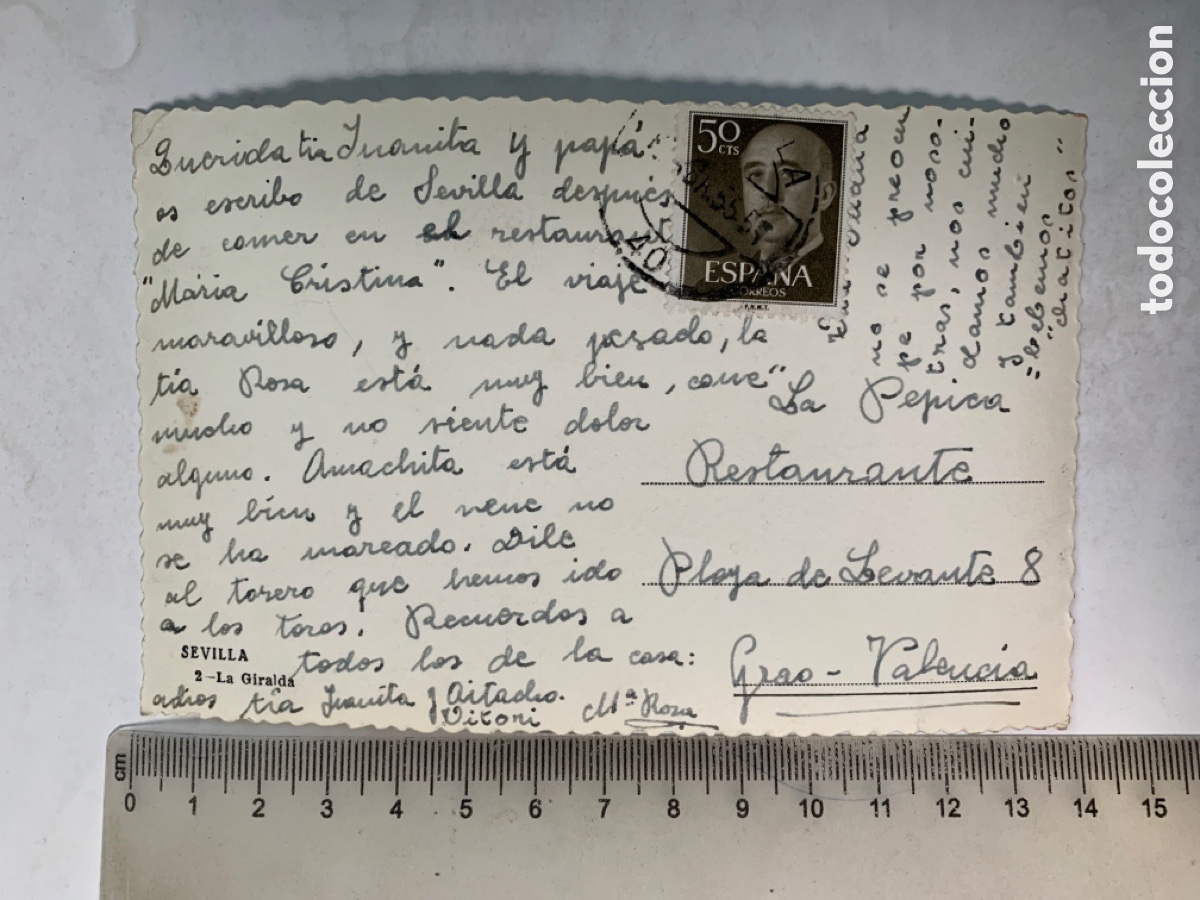 Querida tia Juanita y papá:
os escribo de Sevilla después
de comer en el restaurant
"Maria Cristina". El viaje
maravilloso, y nada pesado, la
tía Rosa está muy bien, come
mucho y no siente dolor
alguno. Amachita está
muy bien y el nene no
se ha mareado. Dile
al torero que hemos ido
a los toros. Recuerdos a
todos los de la casa:
adios tía Juanita y Aitacho.
Vitori Mª Rosa
SEVILLA
2-La Giralda
50
CTS
ESPAÑA
CORREOS
F.N.M.T.
40
no se preocu
pe por noso-
tras, nos cui-
damos mucho
y tambien
bebemos
"chatitos"
"La Pepica
Restaurante
Playa de Levante 8
Grao - Valencia
cm
0 1 2 3 4 5 6 7 8 9 10 11 12 13 14 15
todocoleccion